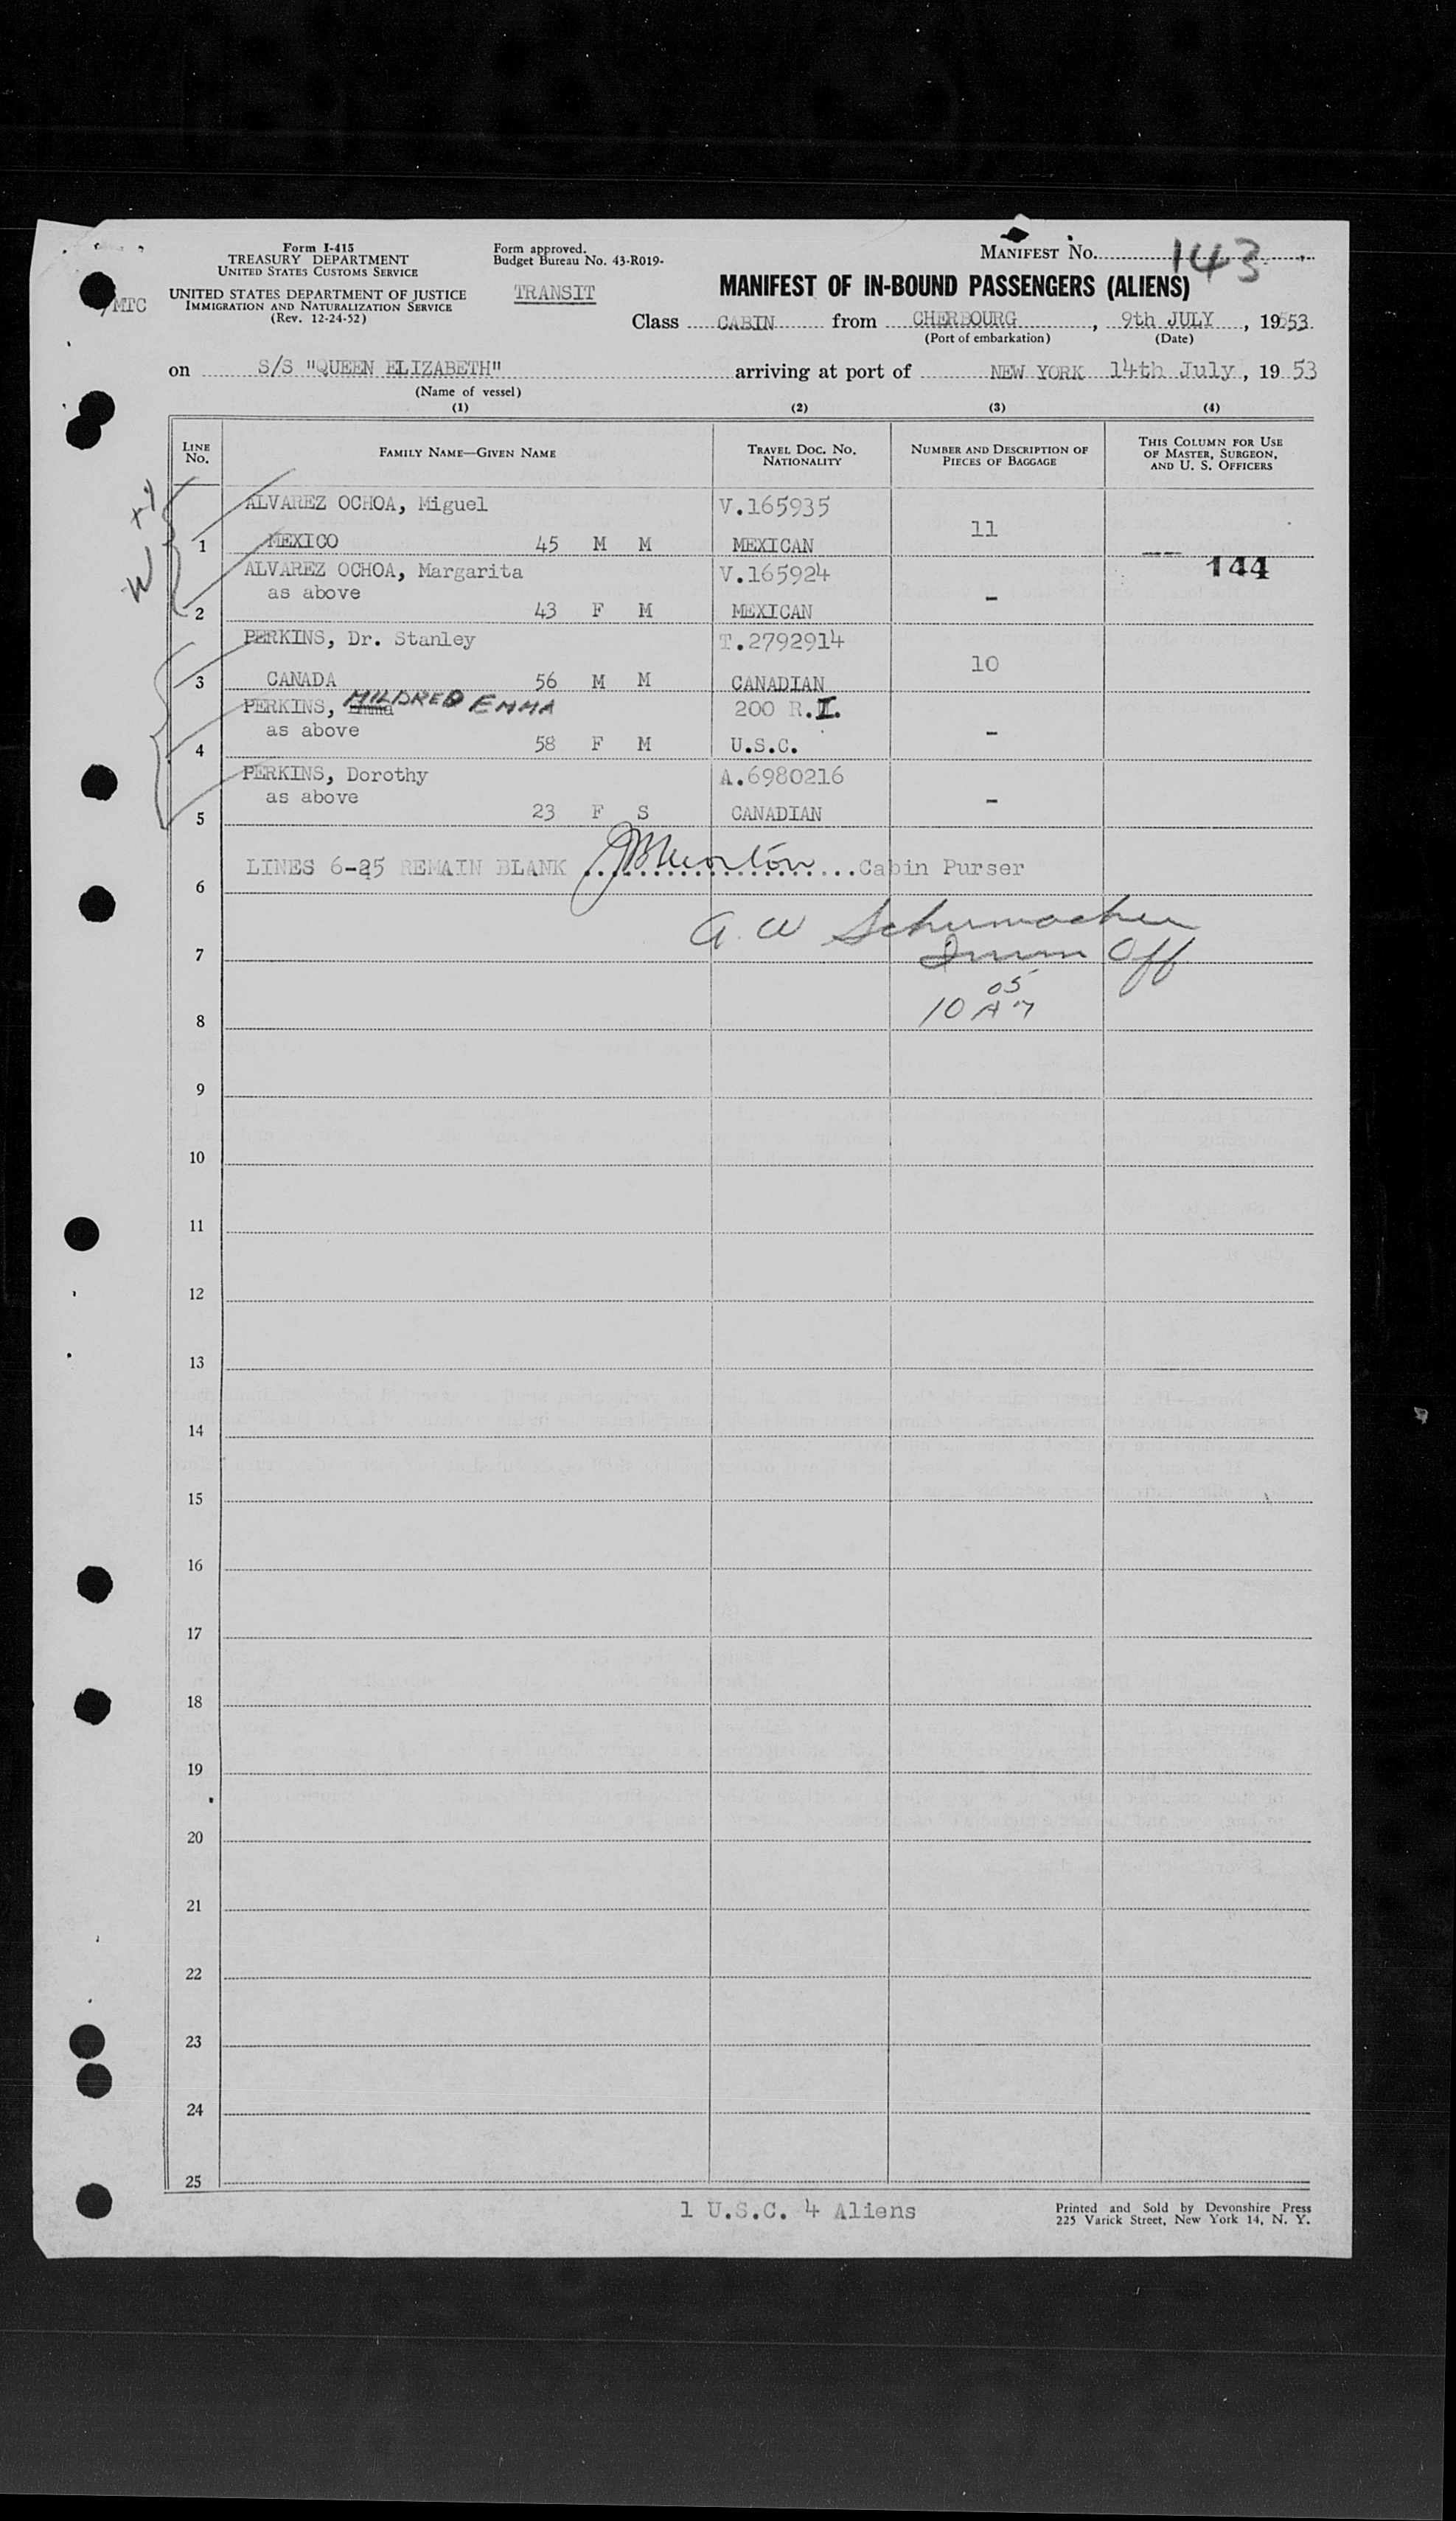 Form I-415
TREASURY DEPARTMENT
UNITED STATES CUSTOMS SERVICE
UNITED STATES DEPARTMENT OF JUSTICE
IMMIGRATION AND NATURALIZATION SERVICE
(Rev. 12-24-52)
MTC
Form approved.
Budget Bureau No. 43-R019-
TRANSIT
MANIFEST No. 143
MANIFEST OF IN-BOUND PASSENGERS (ALIENS)
Class CABIN from CHERBOURG, 9th JULY, 1953
(Port of embarkation) (Date)
on S/S "QUEEN ELIZABETH" arriving at port of NEW YORK 14th July, 1953
(Name of vessel)
(1) (2) (3) (4)
LINE No. FAMILY NAME—GIVEN NAME TRAVEL DOC. NO. NATIONALITY NUMBER AND DESCRIPTION OF PIECES OF BAGGAGE THIS COLUMN FOR USE OF MASTER, SURGEON, AND U. S. OFFICERS
ALVAREZ OCHOA, Miguel V.165935
1 MEXICO 45 M M MEXICAN 11
ALVAREZ OCHOA, Margarita V.165924 144
as above
2 43 F M MEXICAN -
PERKINS, Dr. Stanley T.2792914
3 CANADA 56 M M CANADIAN 10
PERKINS, Emma MILDRED EMMA 200 R.I.
as above
4 58 F M U.S.C. -
PERKINS, Dorothy A.6980216
as above
5 23 F S CANADIAN -
LINES 6-25 REMAIN BLANK ....................Cabin Purser
6
A. W Schumacher
7 Imm Off
10 05 AM
8
9
10
11
12
13
14
15
16
17
18
19
20
21
22
23
24
25
1 U.S.C. 4 Aliens
Printed and Sold by Devonshire Press
225 Varick Street, New York 14, N. Y.